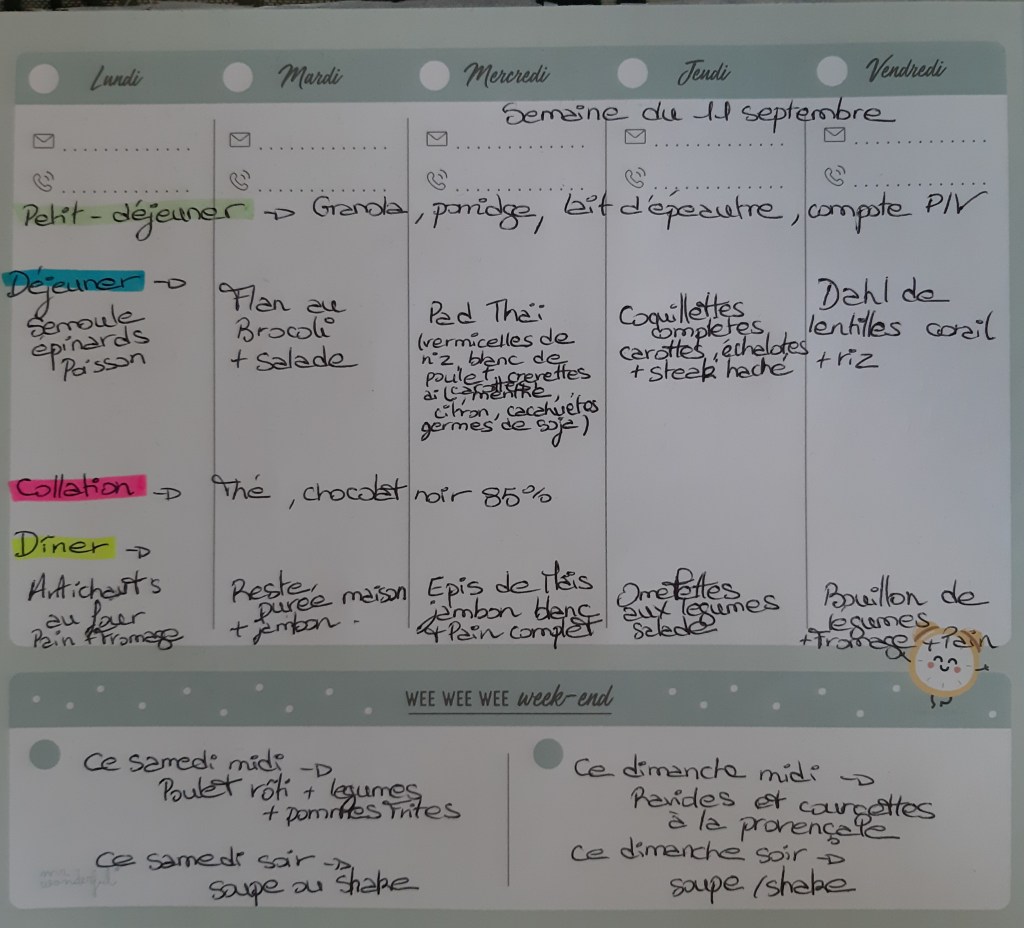 Lundi Mardi Mercredi Jeudi Vendredi
Semaine du 11 septembre
Petit-déjeuner → Granola, porridge, lait d'épeautre, compote P/V
Déjeuner →
Semoule
épinards
Poisson
Flan au
Brocoli
+ Salade
Pad Thaï
(vermicelles de
riz blanc de
poulet, crevettes
ail, menthe,
citron, cacahuètes
germes de soja)
Coquillettes
complètes,
carottes, échalotes
+ steak haché
Dahl de
lentilles corail
+ riz
Collation → Thé, chocolat noir 85%
Dîner →
Artichauts
au four
Pain + Fromage
Reste
purée maison
+ jambon.
Epis de Maïs
jambon blanc
+ Pain complet
Omelettes
aux légumes
Salade
Bouillon de
légumes
+ Fromage + Pain
WEE WEE WEE week-end
Ce samedi midi →
Poulet rôti + légumes
+ pommes frites
Ce samedi soir →
soupe ou shake
Ce dimanche midi →
Ravioles et courgettes
à la provençale
Ce dimanche soir →
soupe / shake